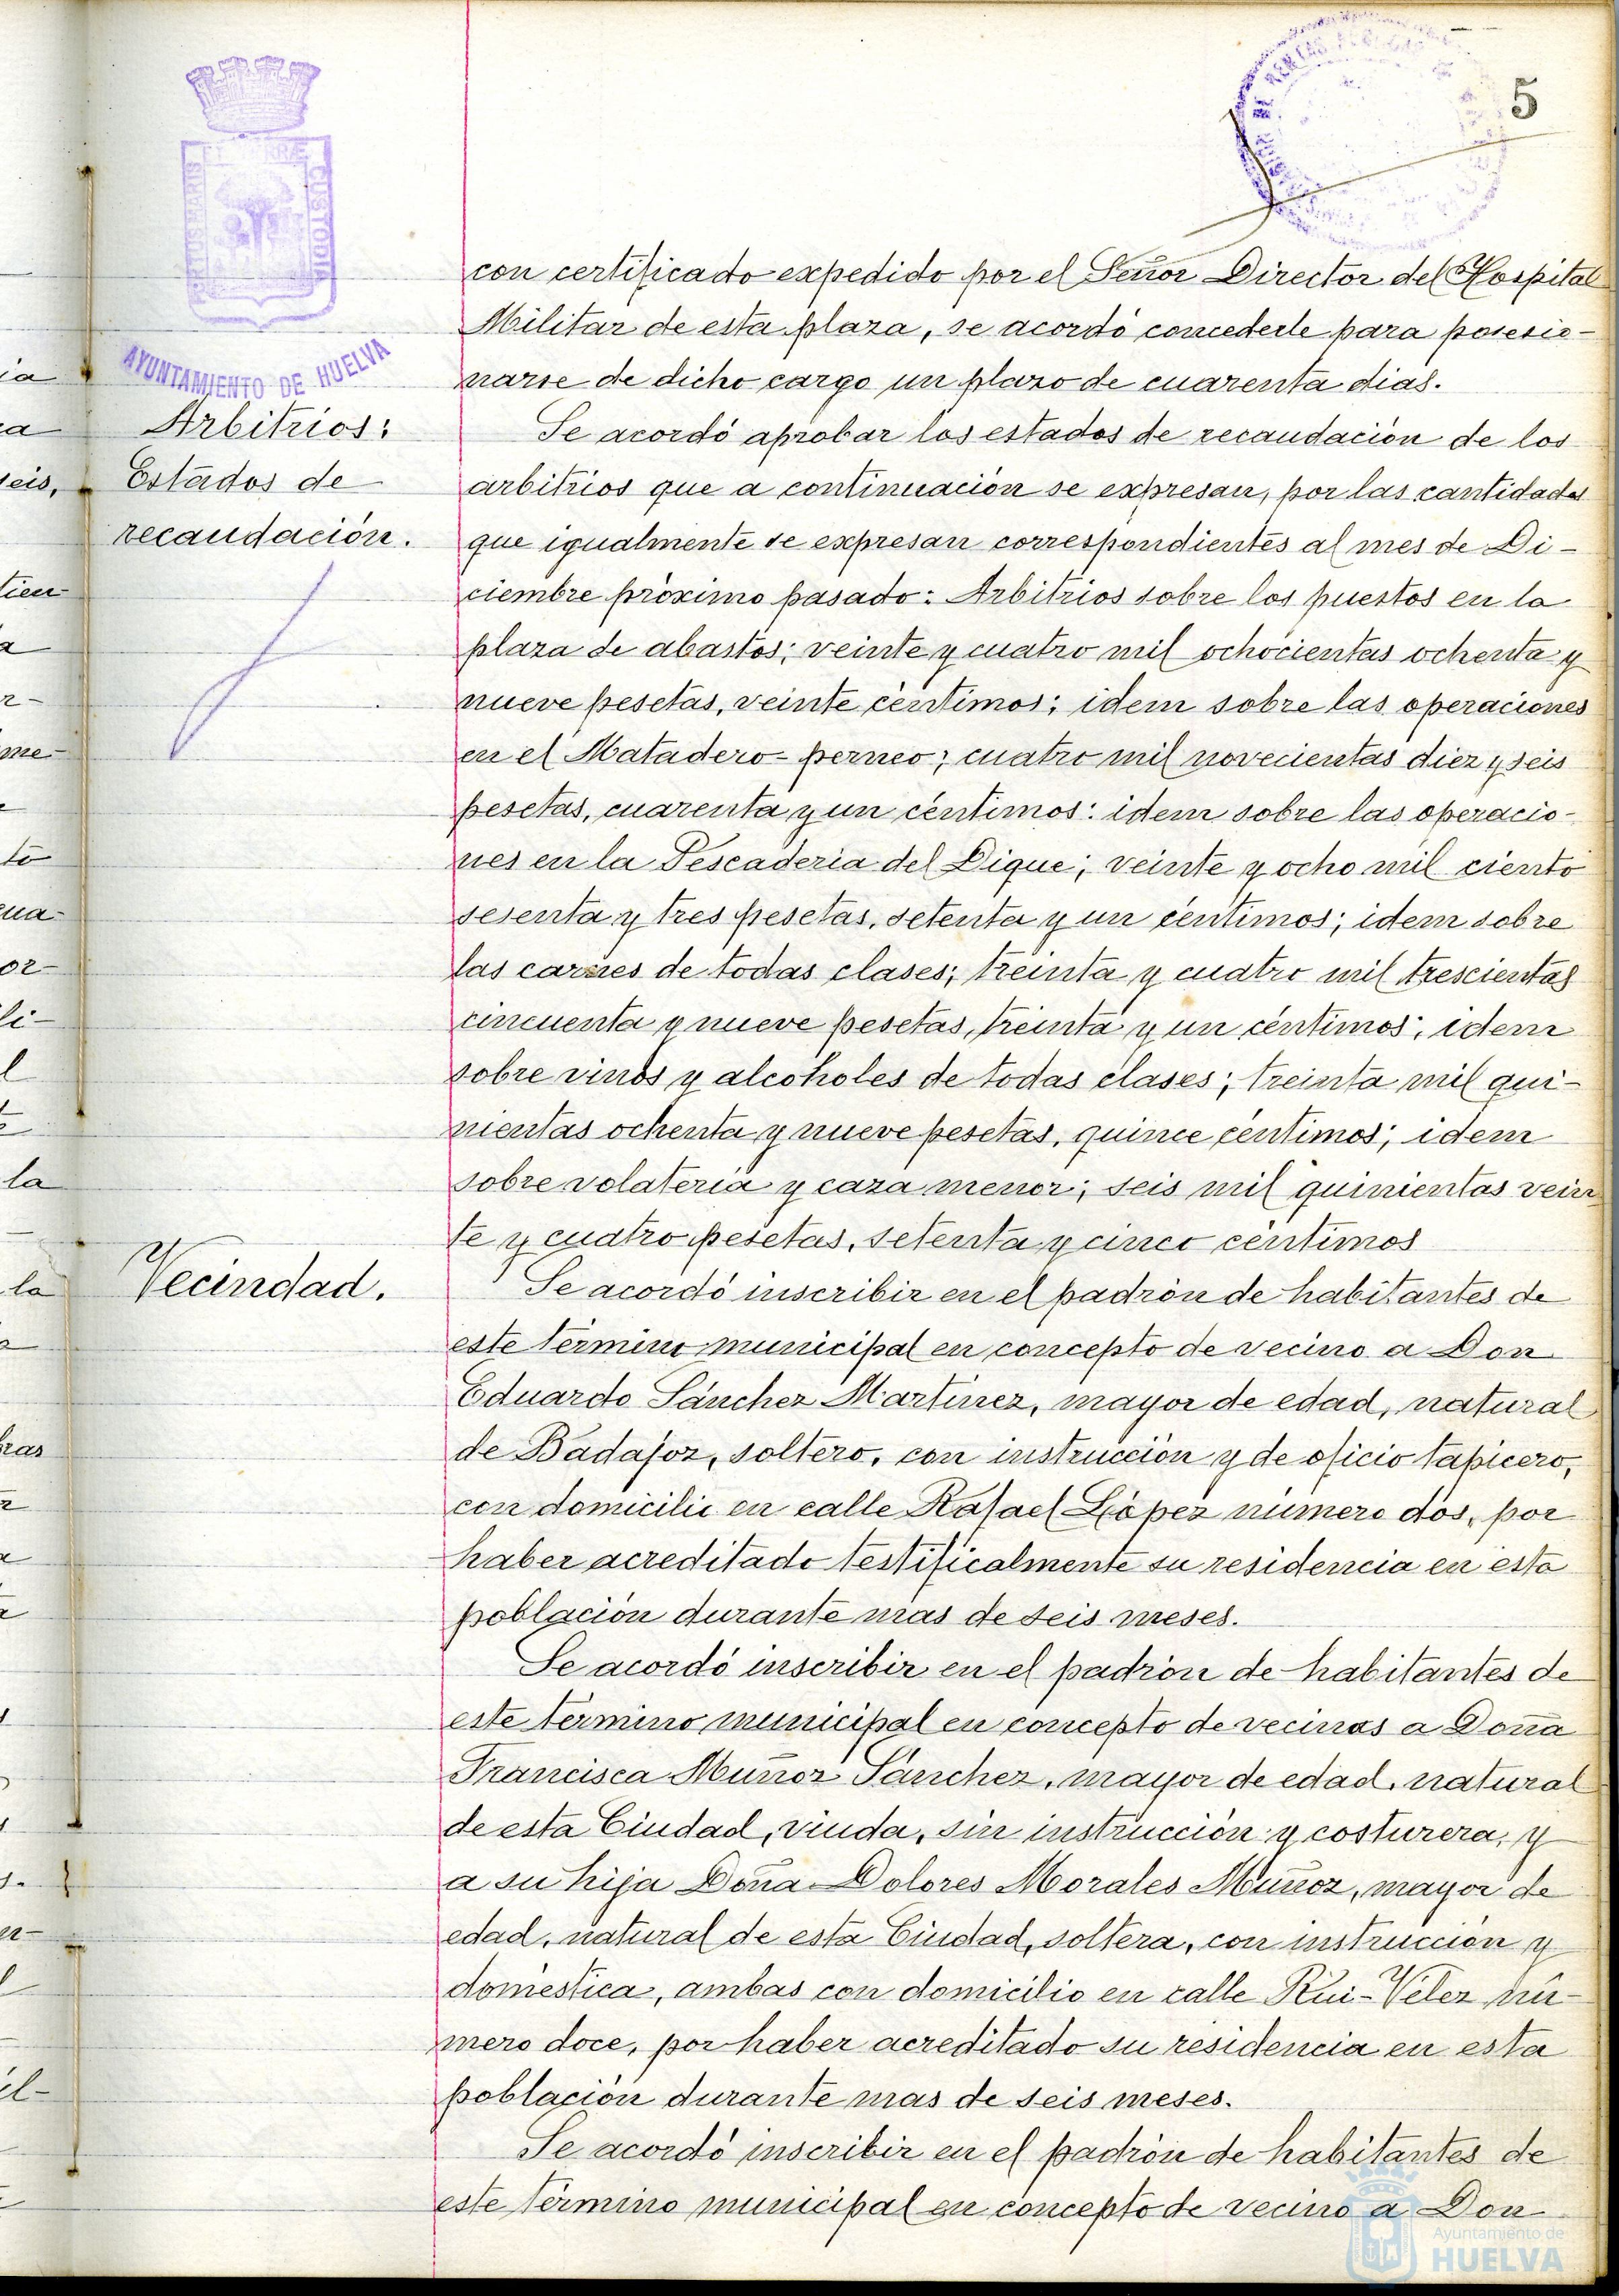 5
AYUNTAMIENTO DE HUELVA
con certificado expedido por el Señor Director del Hospital
Militar de esta plaza, se acordó concederle para posesio-
narse de dicho cargo un plazo de cuarenta dias.
Arbitrios:
Estados de
recaudación.
Se acordó aprobar los estados de recaudación de los
arbitrios que a continuación se expresan, por las cantidades
que igualmente se expresan correspondientes al mes de Di-
ciembre próximo pasado: Arbitrios sobre los puestos en la
plaza de abastos; veinte y cuatro mil ochocientas ochenta y
nueve pesetas, veinte céntimos; idem sobre las operaciones
en el Matadero-perneo; cuatro mil novecientas diez y seis
pesetas, cuarenta y un céntimos: idem sobre las operacio-
nes en la Pescaderia del Dique; veinte y ocho mil ciento
sesenta y tres pesetas, setenta y un céntimos; idem sobre
las carnes de todas clases; treinta y cuatro mil trescientas
cincuenta y nueve pesetas, treinta y un céntimos; idem
sobre vinos y alcoholes de todas clases; treinta mil qui-
nientas ochenta y nueve pesetas, quince céntimos; idem
sobre volateria y caza menor; seis mil quinientas vein
te y cuatro pesetas, setenta y cinco céntimos
Vecindad.
Se acordó inscribir en el padrón de habitantes de
este término municipal en concepto de vecino a Don
Eduardo Sánchez Martinez, mayor de edad, natural
de Badajoz, soltero, con instrucción y de oficio tapicero,
con domicilio en calle Rafael López número dos, por
haber acreditado testificalmente su residencia en esta
población durante mas de seis meses.
Se acordó inscribir en el padrón de habitantes de
este término municipal en concepto de vecinas a Doña
Francisca Muñoz Sánchez, mayor de edad, natural
de esta Ciudad, viuda, sin instrucción y costurera, y
a su hija Doña Dolores Morales Muñoz, mayor de
edad, natural de esta Ciudad, soltera, con instrucción y
doméstica, ambas con domicilio en calle Rui-Velez nú-
mero doce, por haber acreditado su residencia en esta
población durante mas de seis meses.
Se acordó inscribir en el padrón de habitantes de
este término municipal en concepto de vecino a Don
Ayuntamiento de
HUELVA